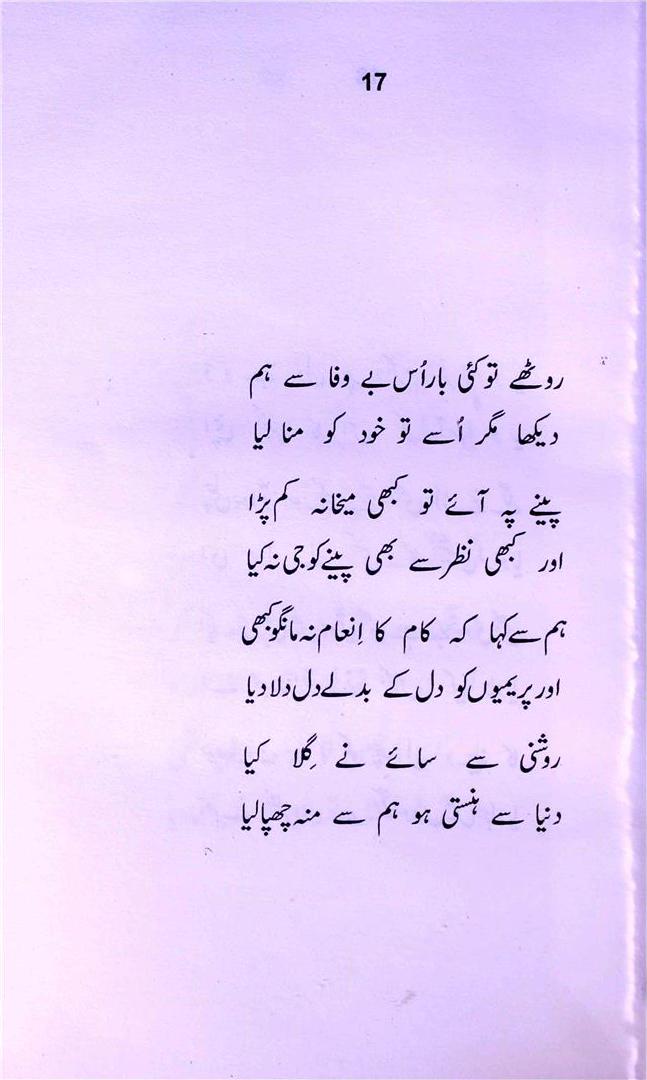 17
روٹھے تو کئی بار اُس بے وفا سے ہم
دیکھا مگر اُسے تو خود کو منا لیا
پینے پہ آئے تو کبھی میخانہ کم پڑا
اور کبھی نظر سے بھی پینے کو جی نہ کیا
ہم سے کہا کہ کام کا اِنعام نہ مانگو کبھی
اور پریمیوں کو دل کے بدلے دل دلا دیا
روشنی سے سائے نے گِلا کیا
دنیا سے ہنستی ہو ہم سے منہ چھپا لیا